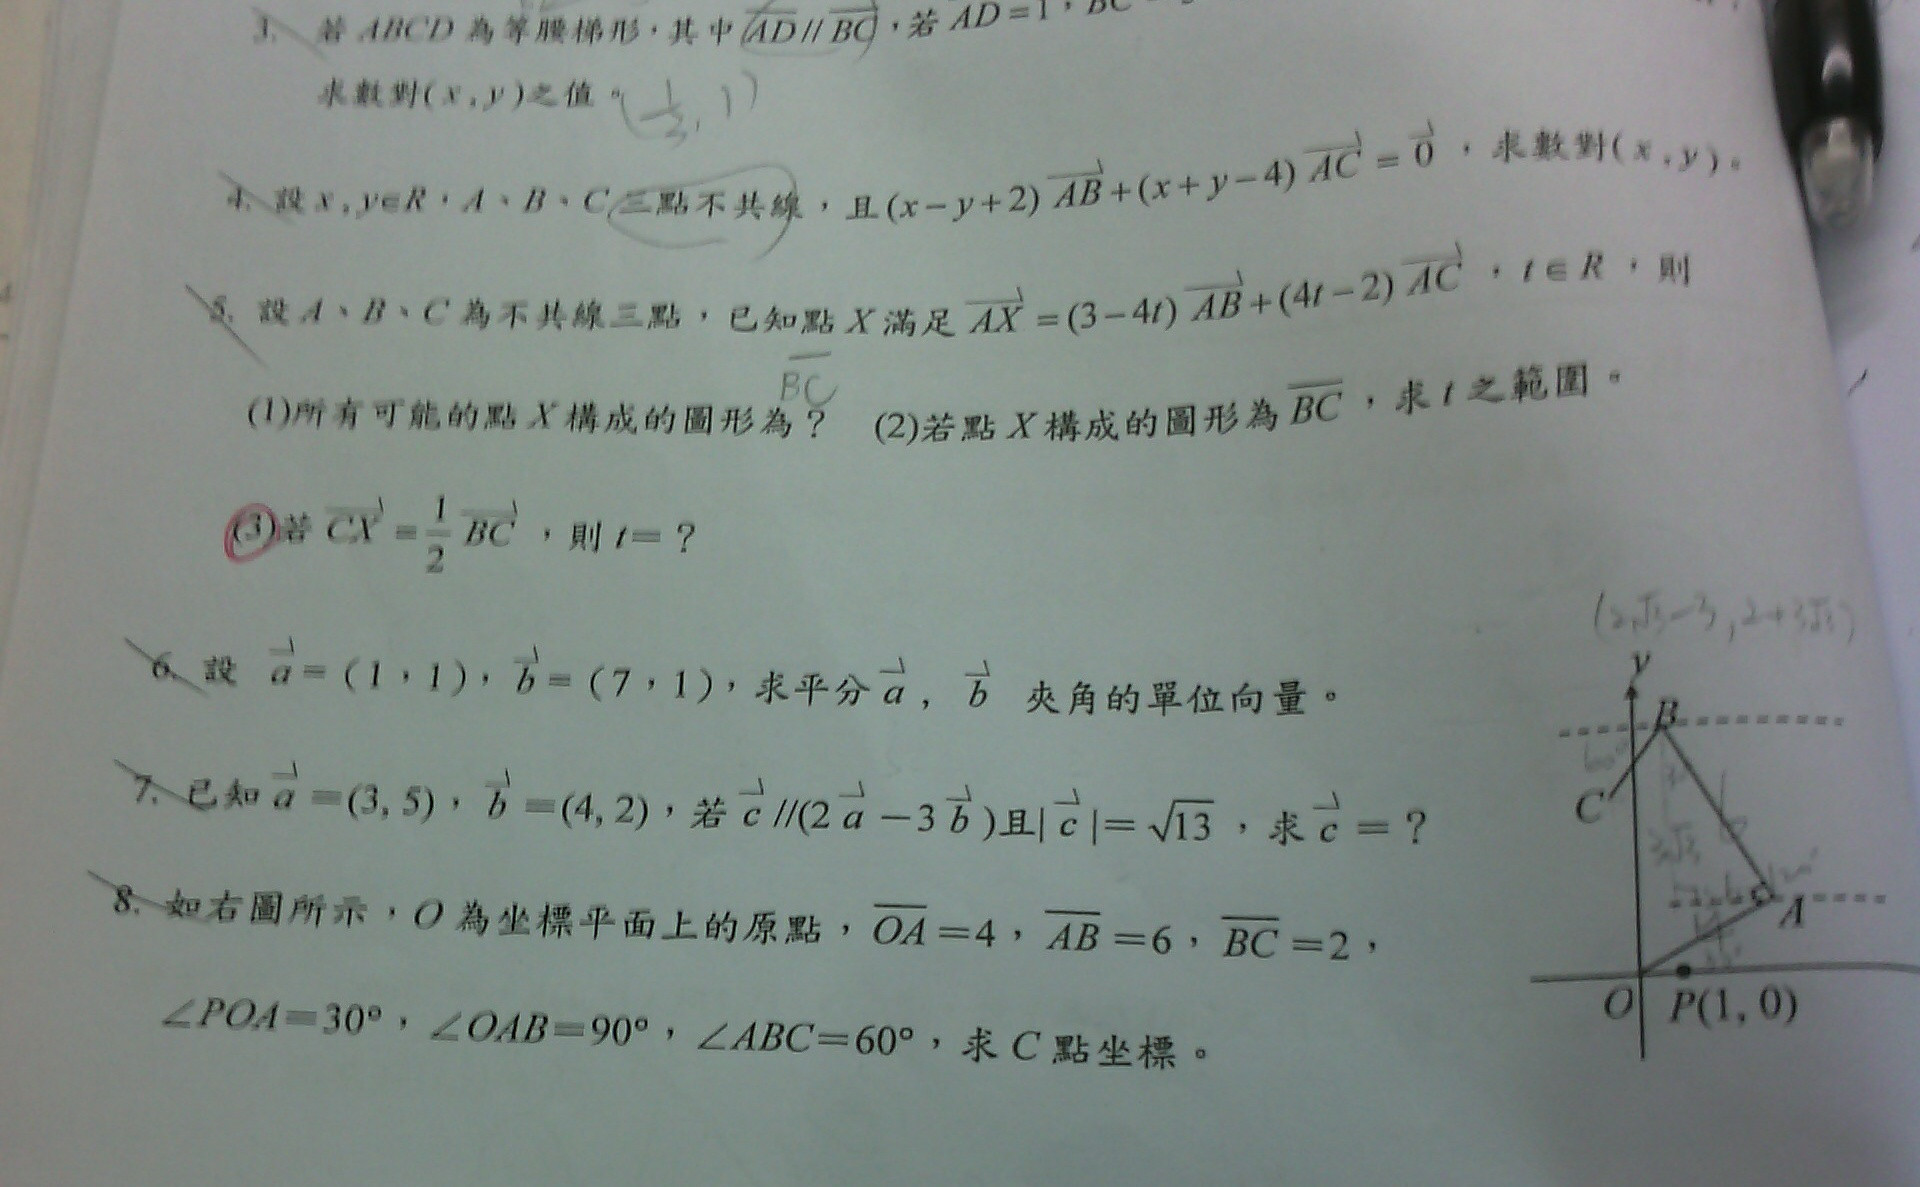 3. 若 ABCD 為等腰梯形，其中 AD // BC，若 AD = 1，BC
求數對(x, y)之值。(1/3, 1)
4. 設 x, y∈R，A、B、C 三點不共線，且(x−y+2) AB+(x+y−4) AC = 0，求數對(x, y)。
5. 設 A、B、C 為不共線三點，已知點 X 滿足 AX = (3−4t) AB+(4t−2) AC，t∈R，則
BC
(1)所有可能的點 X 構成的圖形為？ (2)若點 X 構成的圖形為 BC，求 t 之範圍。
(3)若 CX = 1/2 BC，則 t=？
(2√3−3, 2+3√3)
6. 設 a = (1，1)，b = (7，1)，求平分 a , b 夾角的單位向量。
7. 已知 a =(3, 5)，b =(4, 2)，若 c //(2 a −3 b )且| c |= √13，求 c = ？
8. 如右圖所示，O 為坐標平面上的原點，OA =4，AB =6，BC =2，
∠POA=30°，∠OAB=90°，∠ABC=60°，求 C 點坐標。
y
B
60°
C
3√3
A
O P(1, 0)